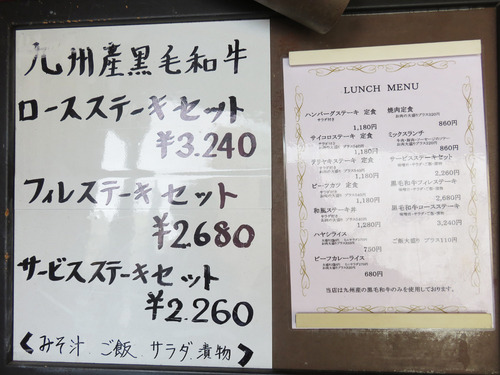 九州産黒毛和牛
ロースステーキセット
¥3.240
フィレステーキセット
¥2680
サービスステーキセット
¥2.260
〈みそ汁 ご飯 サラダ 漬物〉
LUNCH MENU
ハンバーグステーキ 定食
サラダ付き
1,180円
サイコロステーキ 定食
1,180円
テリヤキステーキ 定食
1,180円
ビーフカツ 定食
1,180円
和風ステーキ丼
1,280円
ハヤシライス
750円
ビーフカレーライス
680円
焼肉定食
860円
ミックスランチ
860円
サービスステーキセット
2,260円
黒毛和牛フィレステーキ
2,680円
黒毛和牛ロースステーキ
3,240円
ご飯大盛り プラス110円
当店は九州産の黒毛和牛のみを使用しております。